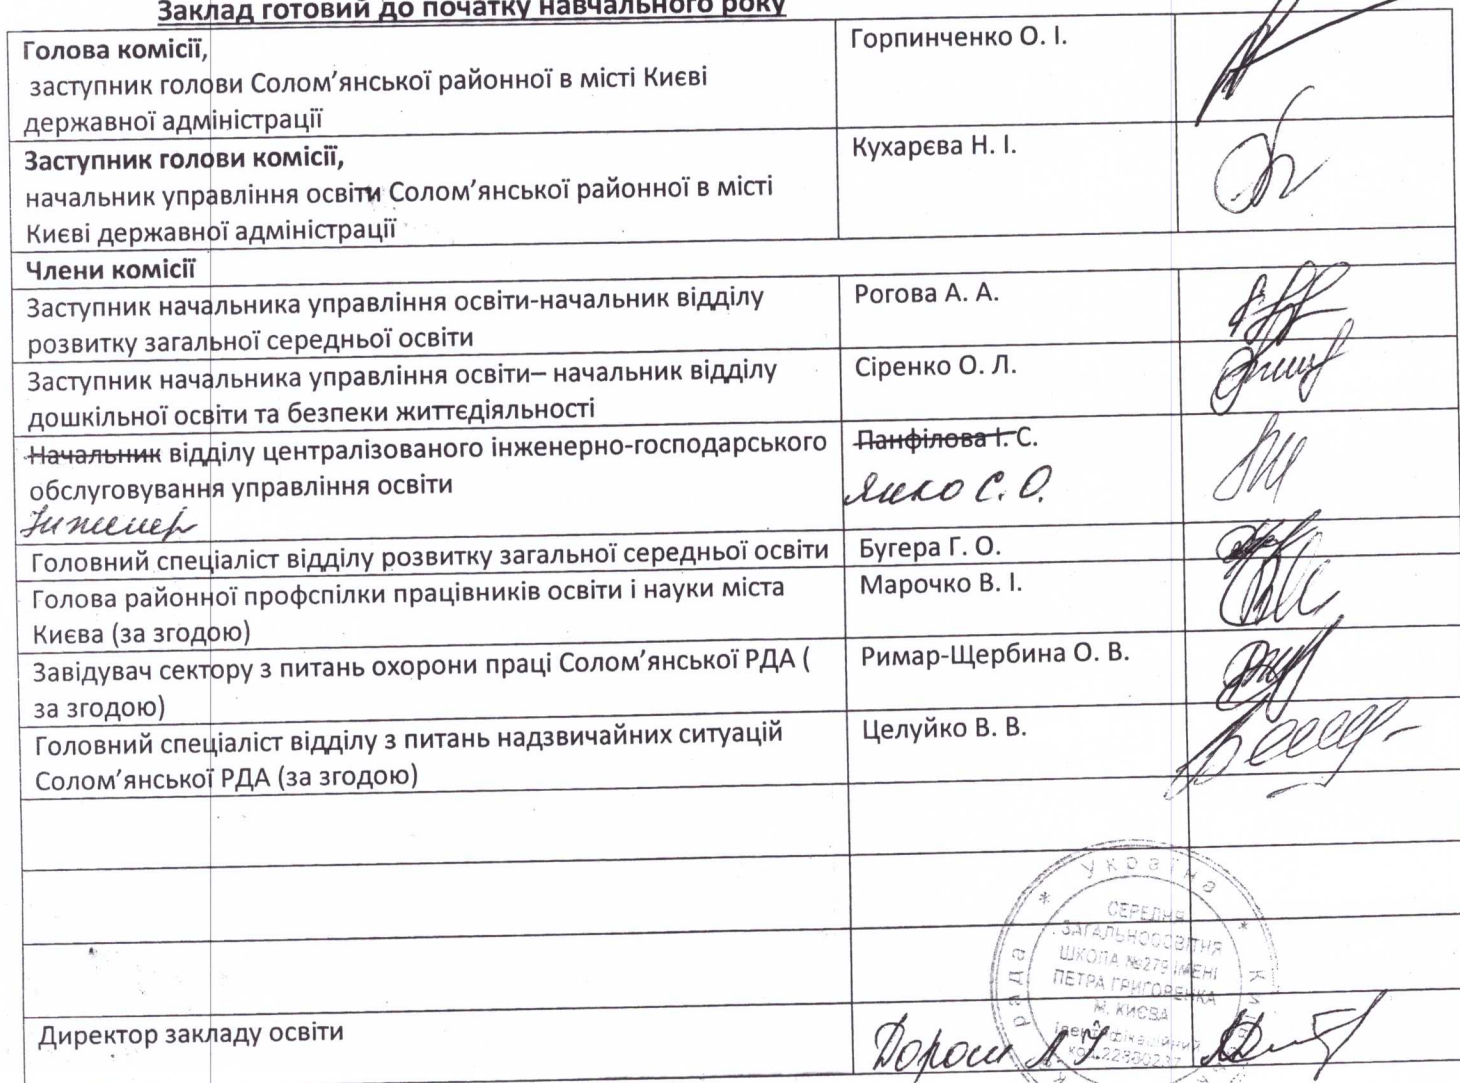 Заклад готовий до початку навчального року
Голова комісії,
заступник голови Солом’янської районної в місті Києві
державної адміністрації
Горпинченко О. І.
Заступник голови комісії,
начальник управління освіти Солом’янської районної в місті
Києві державної адміністрації
Кухарєва Н. І.
Члени комісії
Заступник начальника управління освіти-начальник відділу
розвитку загальної середньої освіти
Рогова А. А.
Заступник начальника управління освіти– начальник відділу
дошкільної освіти та безпеки життєдіяльності
Сіренко О. Л.
Начальник відділу централізованого інженерно-господарського
обслуговування управління освіти
Інженер
Панфілова І. С.
Янко С. О.
Головний спеціаліст відділу розвитку загальної середньої освіти
Бугера Г. О.
Голова районної профспілки працівників освіти і науки міста
Києва (за згодою)
Марочко В. І.
Завідувач сектору з питань охорони праці Солом’янської РДА (
за згодою)
Римар-Щербина О. В.
Головний спеціаліст відділу з питань надзвичайних ситуацій
Солом’янської РДА (за згодою)
Целуйко В. В.
* Україна *
СЕРЕДНЯ
ЗАГАЛЬНООСВІТНЯ
ШКОЛА №279 ІМЕНІ
ПЕТРА ГРИГОРЕНКА
М. КИЄВА
ідентифікаційний
рада
Директор закладу освіти